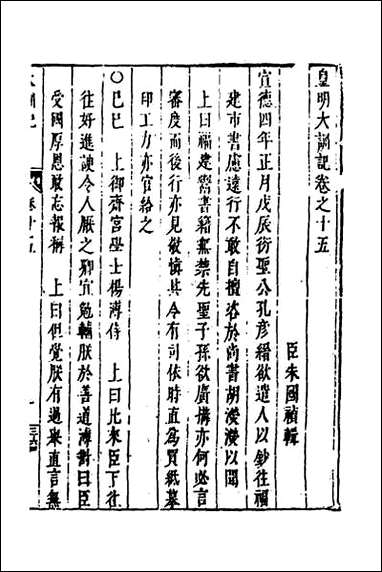 皇明大訓記卷之十五
臣朱國禎輯
宣德四年正月戊辰衍聖公孔彥縉欲遣人以鈔往福
建市書慮遠行不敢自擅咨於尚書胡濙濙以聞
上曰福建鬻書籍無禁先聖子孫欲廣購亦何必言
審度而後行亦見敬慎其令有司依時直為買紙摹
印工力亦官給之
○己巳　上御齋宮學士楊溥侍　上曰比來臣下往
往好進諛令人厭之卿宜勉輔朕於善道溥對曰臣
受國厚恩敢忘報稱　上曰但覺朕有過來直言無